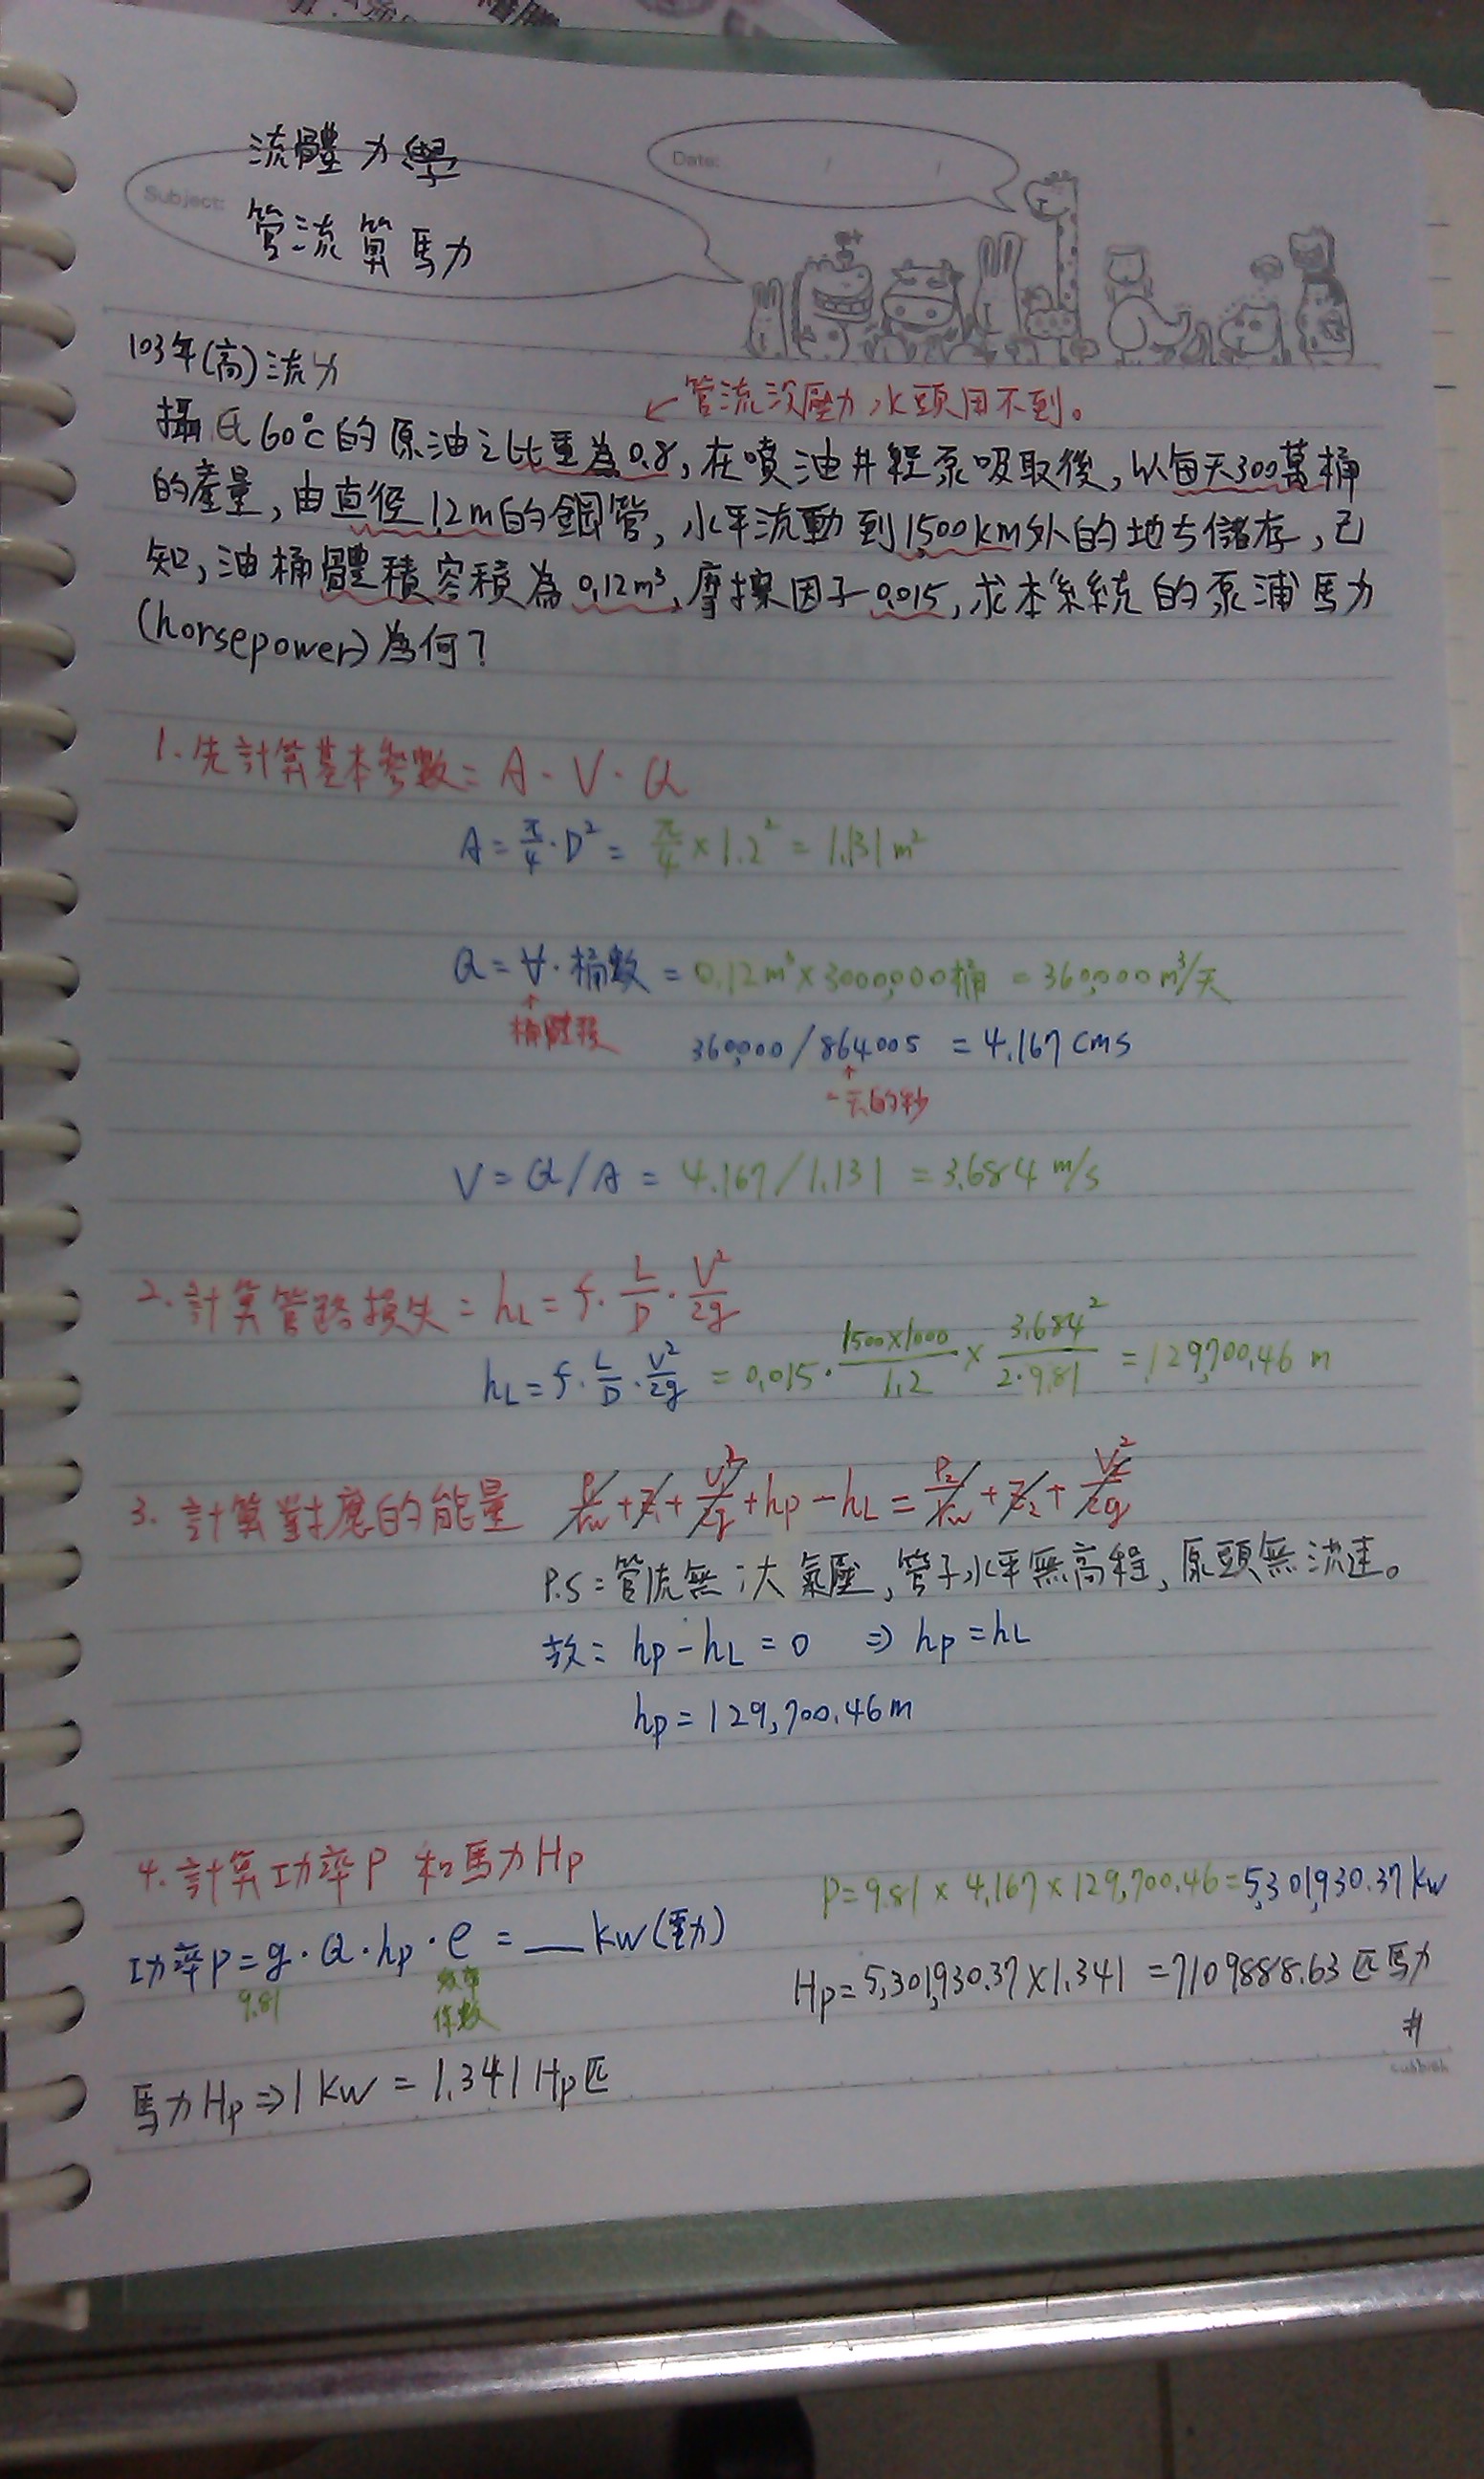 流體力學
Subject:
管流算馬力
Date: / /
103年(高)流力
← 管流沒壓力水頭用不到。
攝氏60℃的原油之比重為0.8,在噴油井經泵吸取後,以每天300萬桶
的產量,由直徑1.2m的鋼管,水平流動到1500km外的地方儲存,已
知,油桶體積容積為0.12m³,摩擦因子0.015,求本系統的泵浦馬力
(horsepower)為何?
1.先計算基本參數= A、V、Q
A = π/4·D² = π/4 × 1.2² = 1.131 m²
Q = V·桶數 = 0.12m³×3000,000桶 = 360,000 m³/天
↑
桶體積
360,000/86400s = 4.167 cms
↑
一天的秒
V = Q/A = 4.167/1.131 = 3.684 m/s
2.計算管路損失= hL = f·L/D·V²/2g
hL = f·L/D·V²/2g = 0.015·1500×1000/1.2 × 3.684²/2·9.81 = 129,700.46 m
3.計算對應的能量 P1/rw + Z1 + V1²/2g + hp - hL = P2/rw + Z2 + V2²/2g
P.S=管流無大氣壓,管子水平無高程,原頭無流速。
故= hp - hL = 0 ⇒ hp = hL
hp = 129,700.46m
4.計算功率P 和馬力Hp
P=9.81 × 4.167 × 129,700.46=5,301,930.37 kw
功率P=g·Q·hp·e = __ kw(電力)
9.81
效率
係數
Hp=5,301,930.37×1.341 =7109888.63 匹馬力
#
馬力Hp ⇒ 1 kw = 1.341 Hp匹